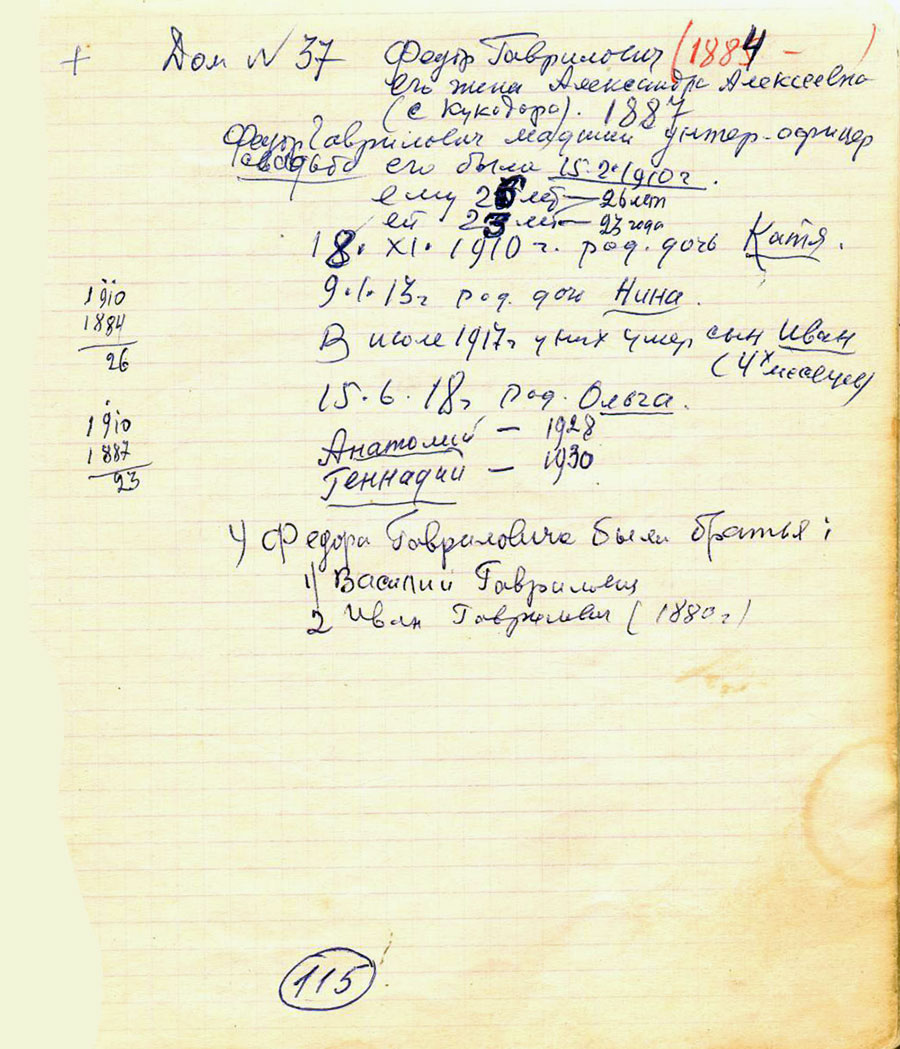 + Дом N 37 Федор Гаврилович (1884 - )
его жена Александра Алексеевна
(с Кукобора). 1887
Федор Гаврилович младший унтер-офицер
свадьба его была 15.2.1910 г.
ему 26 лет — 26 лет
ей 23 лет — 23 года
18. XI. 1910 г. род. дочь Катя.
9.1.13 г род. дочь Нина.
В июле 1917 г у них умер сын Иван
(4х месяцев)
15.6.18 г род. Ольга.
Анатолий — 1928
Геннадий — 1930
1910
1884
26
1910
1887
23
У Федора Гавриловича были братья:
1) Василий Гаврилович
2 Иван Гаврилович (1880 г)
115